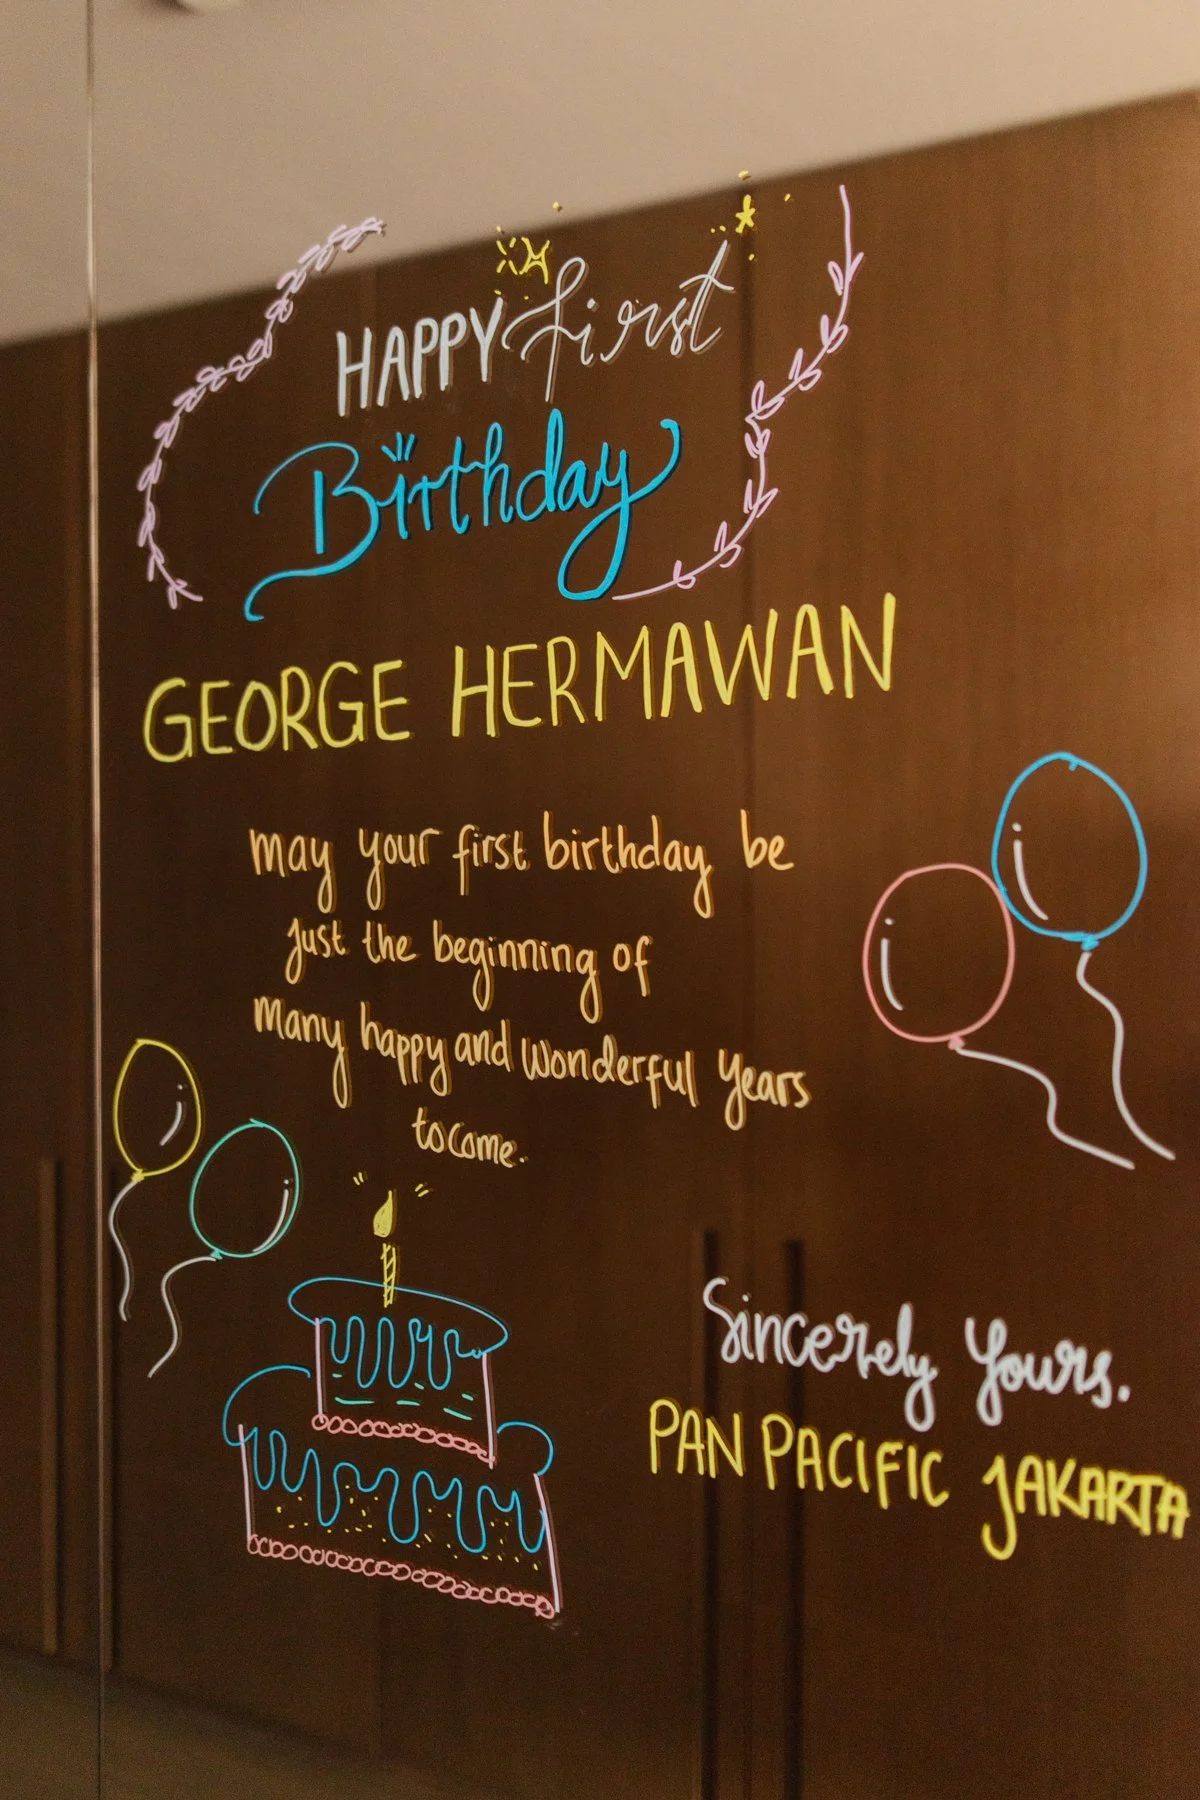 HAPPY first
Birthday
GEORGE HERMAWAN
may your first birthday be
just the beginning of
many happy and wonderful years
to come.
Sincerely Yours.
PAN PACIFIC JAKARTA